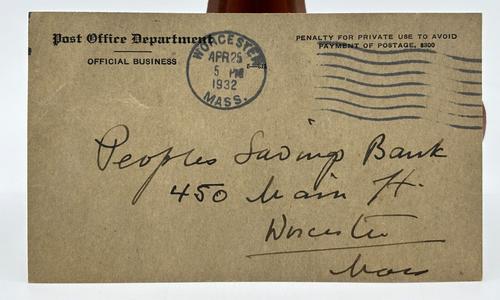 Post Office Department
OFFICIAL BUSINESS
WORCESTER
APR 25
5 PM
1932
MASS.
PENALTY FOR PRIVATE USE TO AVOID
PAYMENT OF POSTAGE, $300
Peoples Savings Bank
450 Main St.
Worcester
Mass